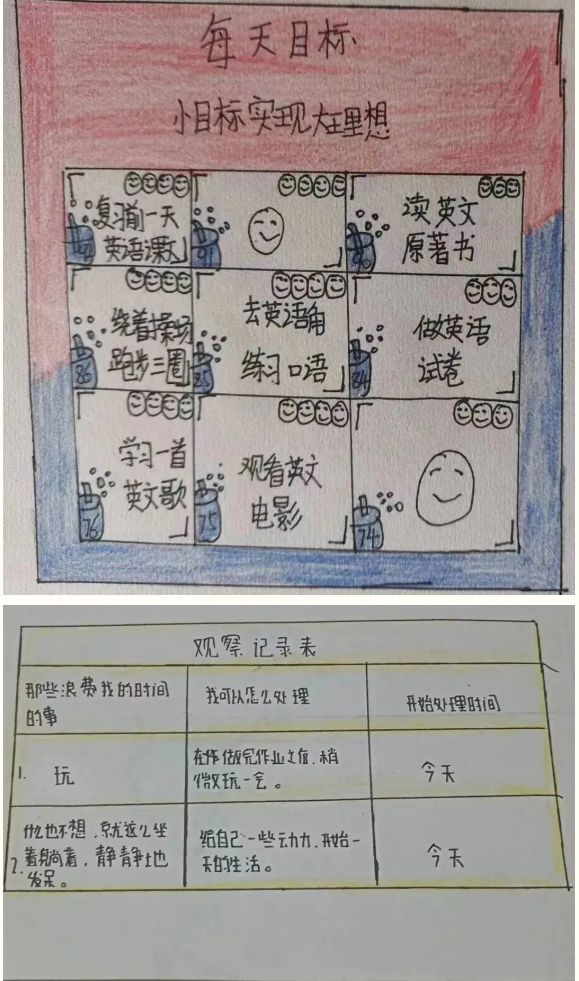 每天目标
小目标实现大理想
复习前一天
英语课文
读英文
原著书
绕着操场
跑步三圈
86
去英语角
练习口语
85
做英语
试卷
84
学习一首
英文歌
76
观看英文
电影
75
74
观察记录表
那些浪费我的时间
的事
我可以怎么处理
开始处理时间
1. 玩
在作做完作业之后,稍
微玩一会。
今天
什么也不想,就这么坐
2. 着躺着,静静地
发呆。
给自己一些动力,开始一
天的生活。
今天